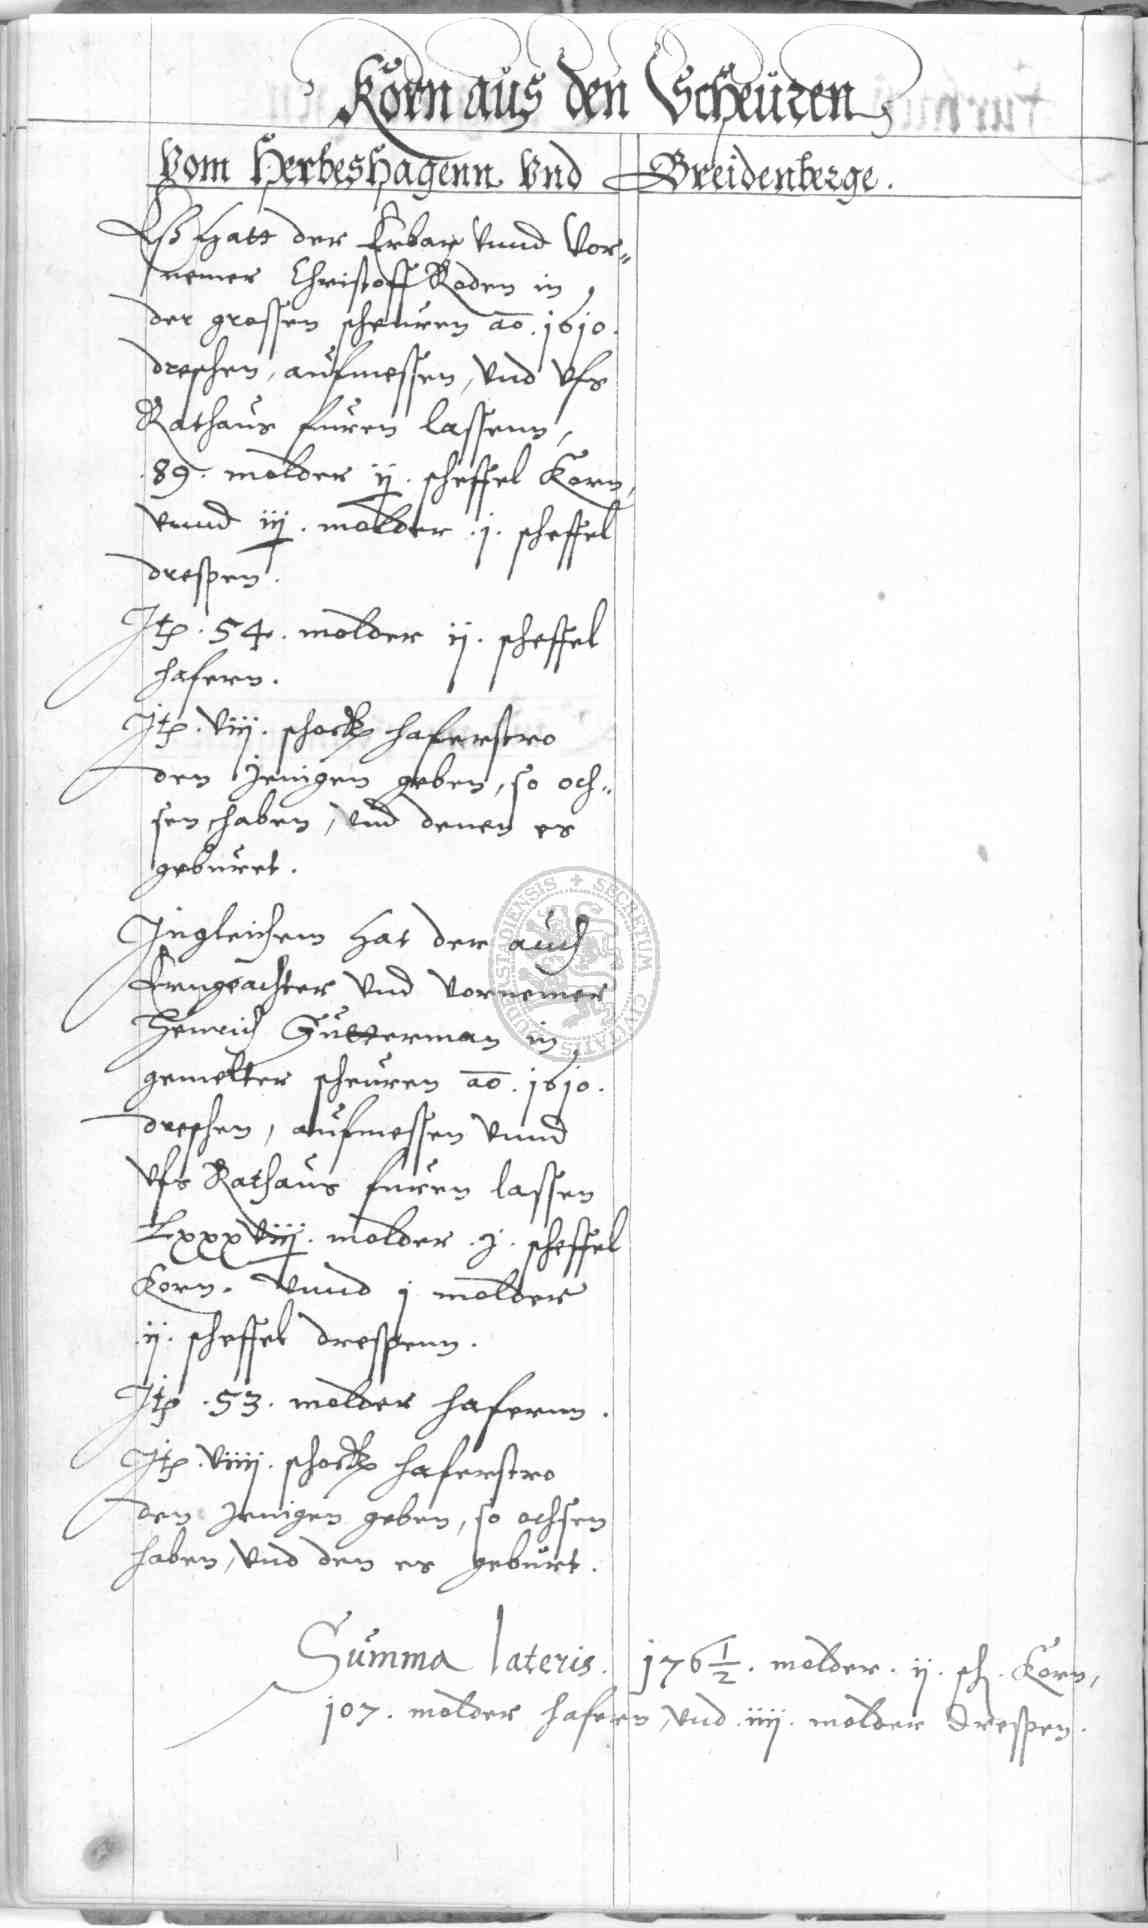 Korn aus den Scheuren
Vom Herbeshagenn vnd Breidenberge.
Eß hatt der Erbar vnnd Vor-
nemer Christoff Roden in
der grossen scheuren ao. 1610.
dreschen, aufmessen, vnd vfs
Rathaus furen lassenn,
.89. molder ij. scheffel Korn,
vnnd iij. molder .j. scheffel
drespen.
Itp. 54. molder ij. scheffel
hafern.
Itp. viij. schock haferstro
den Jenigen geben, so och-
sen haben, vnd denen es
geburet.
Ingleichem hat der auch
Erngeachter vnd vornemer
Henrich Gutterman in
gemelter scheuren ao. 1610.
dreschen, aufmessen vnnd
vfs Rathaus furen lassen
Lxxxviij. molder .j. scheffel
Korn. vnnd j molder
.ij. scheffel drespenn.
Itp .53. molder hafernn.
Itp. viiij. schock haferstro
den Jenigen geben, so ochsen
haben, vnd den es geburt.
Summa lateris. 176 1/2. molder. ij. sch. Korn,
107. molder hafern, vnd .iiij. molder drespen.
SECRETUM CIVITATIS DUDERSTADIENSIS